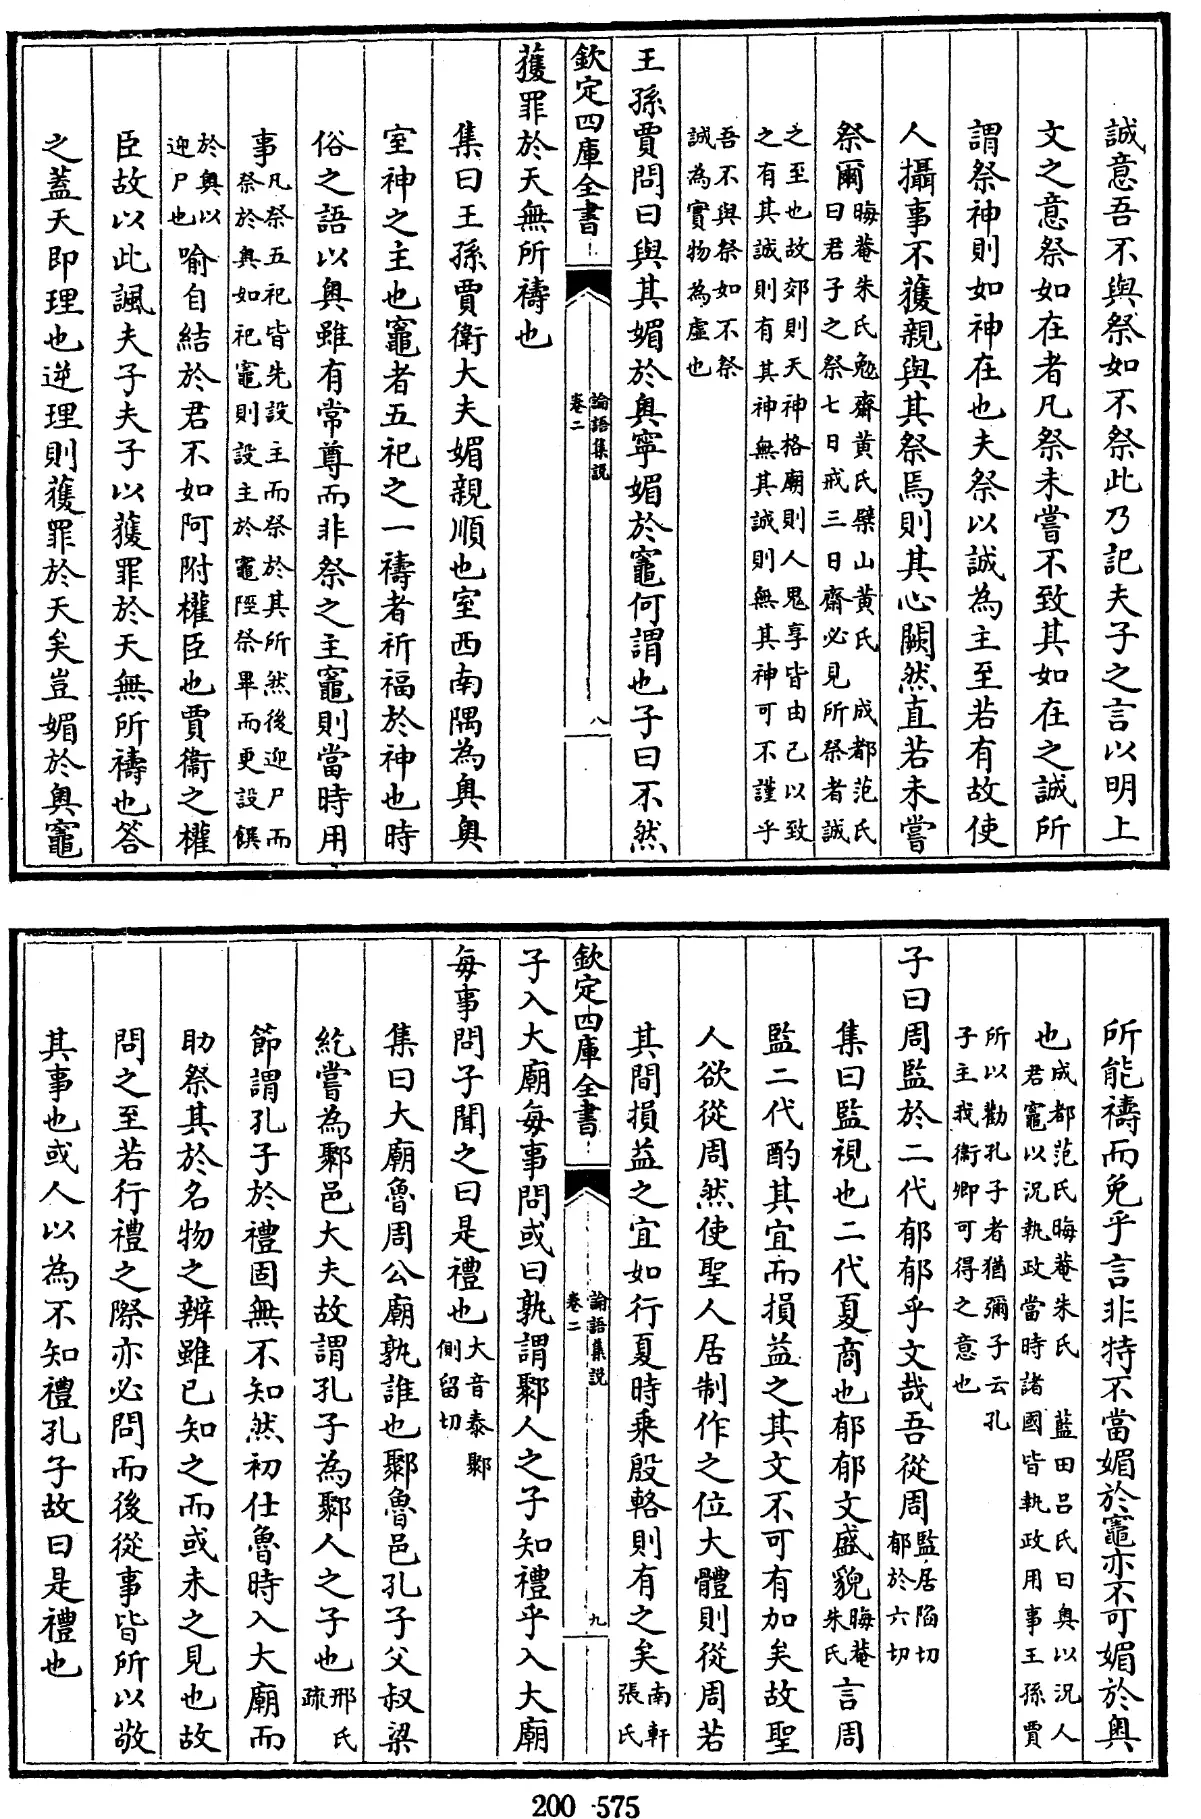 誠意吾不與祭如不祭此乃記夫子之言以明上
文之意祭如在者凡祭未嘗不致其如在之誠所
謂祭神則如神在也夫祭以誠為主至若有故使
人攝事不獲親與其祭焉則其心闕然直若未嘗
祭爾晦菴朱氏勉齋黃氏檗山黃氏 成都范氏
曰君子之祭七日戒三日齋必見所祭者誠
之至也故郊則天神格廟則人鬼享皆由己以致
之有其誠則有其神無其誠則無其神可不謹乎
吾不與祭如不祭
誠為實物為虛也
王孫賈問曰與其媚於奧寧媚於竈何謂也子曰不然
欽定四庫全書
論語集說
卷二
八
獲罪於天無所禱也
集曰王孫賈衛大夫媚親順也室西南隅為奧奧
室神之主也竈者五祀之一禱者祈福於神也時
俗之語以奧雖有常尊而非祭之主竈則當時用
事凡祭五祀皆先設主而祭於其所然後迎尸而
祭於奧如祀竈則設主於竈陘祭畢而更設饌
於奧以
迎尸也喻自結於君不如阿附權臣也賈衞之權
臣故以此諷夫子夫子以獲罪於天無所禱也答
之蓋天即理也逆理則獲罪於天矣豈媚於奧竈
所能禱而免乎言非特不當媚於竈亦不可媚於奧
也成都范氏晦菴朱氏 藍田呂氏曰奧以況人
君竈以況執政當時諸國皆執政用事王孫賈
所以勸孔子者猶彌子云孔
子主我衞卿可得之意也
子曰周監於二代郁郁乎文哉吾從周監居陷切
郁於六切
集曰監視也二代夏商也郁郁文盛貌晦菴
朱氏言周
監二代酌其宜而損益之其文不可有加矣故聖
人欲從周然使聖人居制作之位大體則從周若
其間損益之宜如行夏時乘殷輅則有之矣南軒
張氏
欽定四庫全書
論語集說
卷二
九
子入大廟每事問或曰孰謂鄹人之子知禮乎入大廟
每事問子聞之曰是禮也大音泰鄹
側留切
集曰大廟魯周公廟孰誰也鄹魯邑孔子父叔梁
紇嘗為鄹邑大夫故謂孔子為鄹人之子也邢氏
疏
節謂孔子於禮固無不知然初仕魯時入大廟而
助祭其於名物之辨雖已知之而或未之見也故
問之至若行禮之際亦必問而後從事皆所以敬
其事也或人以為不知禮孔子故曰是禮也
200-575